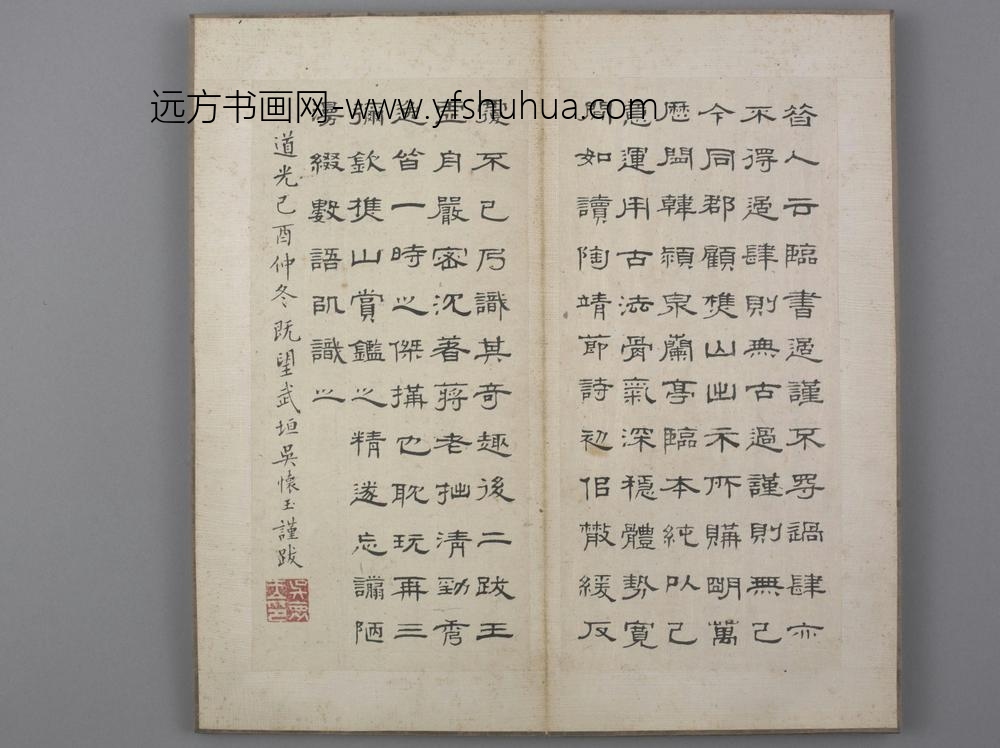 远方书画网-www.yfshuhua.com
昔人云臨書過謹不㝵過肆亦
不得過肆則無古過謹則無己
今同郡顧樵山出示所購明萬
歷間韓潁泉蘭亭臨本純以己
意運用古法骨氣深穩體勢寬
閒如讀陶靖節詩初侣散緩反
覆不已乃識其奇趣後二跋王
孟自嚴密沈著蔣老拙清勁秀
逸皆一時之傑搆也耽玩再三
彌欽樵山賞鑑之精遂忘譾陋
漫綴數語以識之
道光己酉仲冬既望武垣吳懷玉謹跋